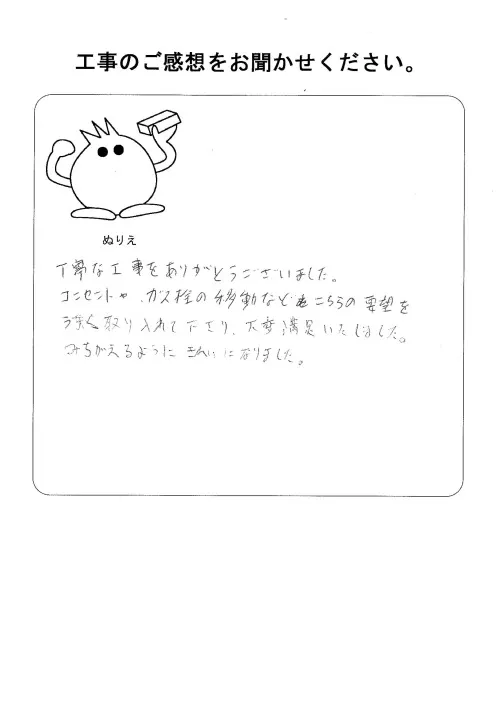 工事のご感想をお聞かせください。
ぬりえ
丁寧な工事をありがとうございました。
コンセントや、ガス栓の移動など こちらの要望を
取り入れて下さり、大変満足いたしました。
みちがえるように きれいになりました。